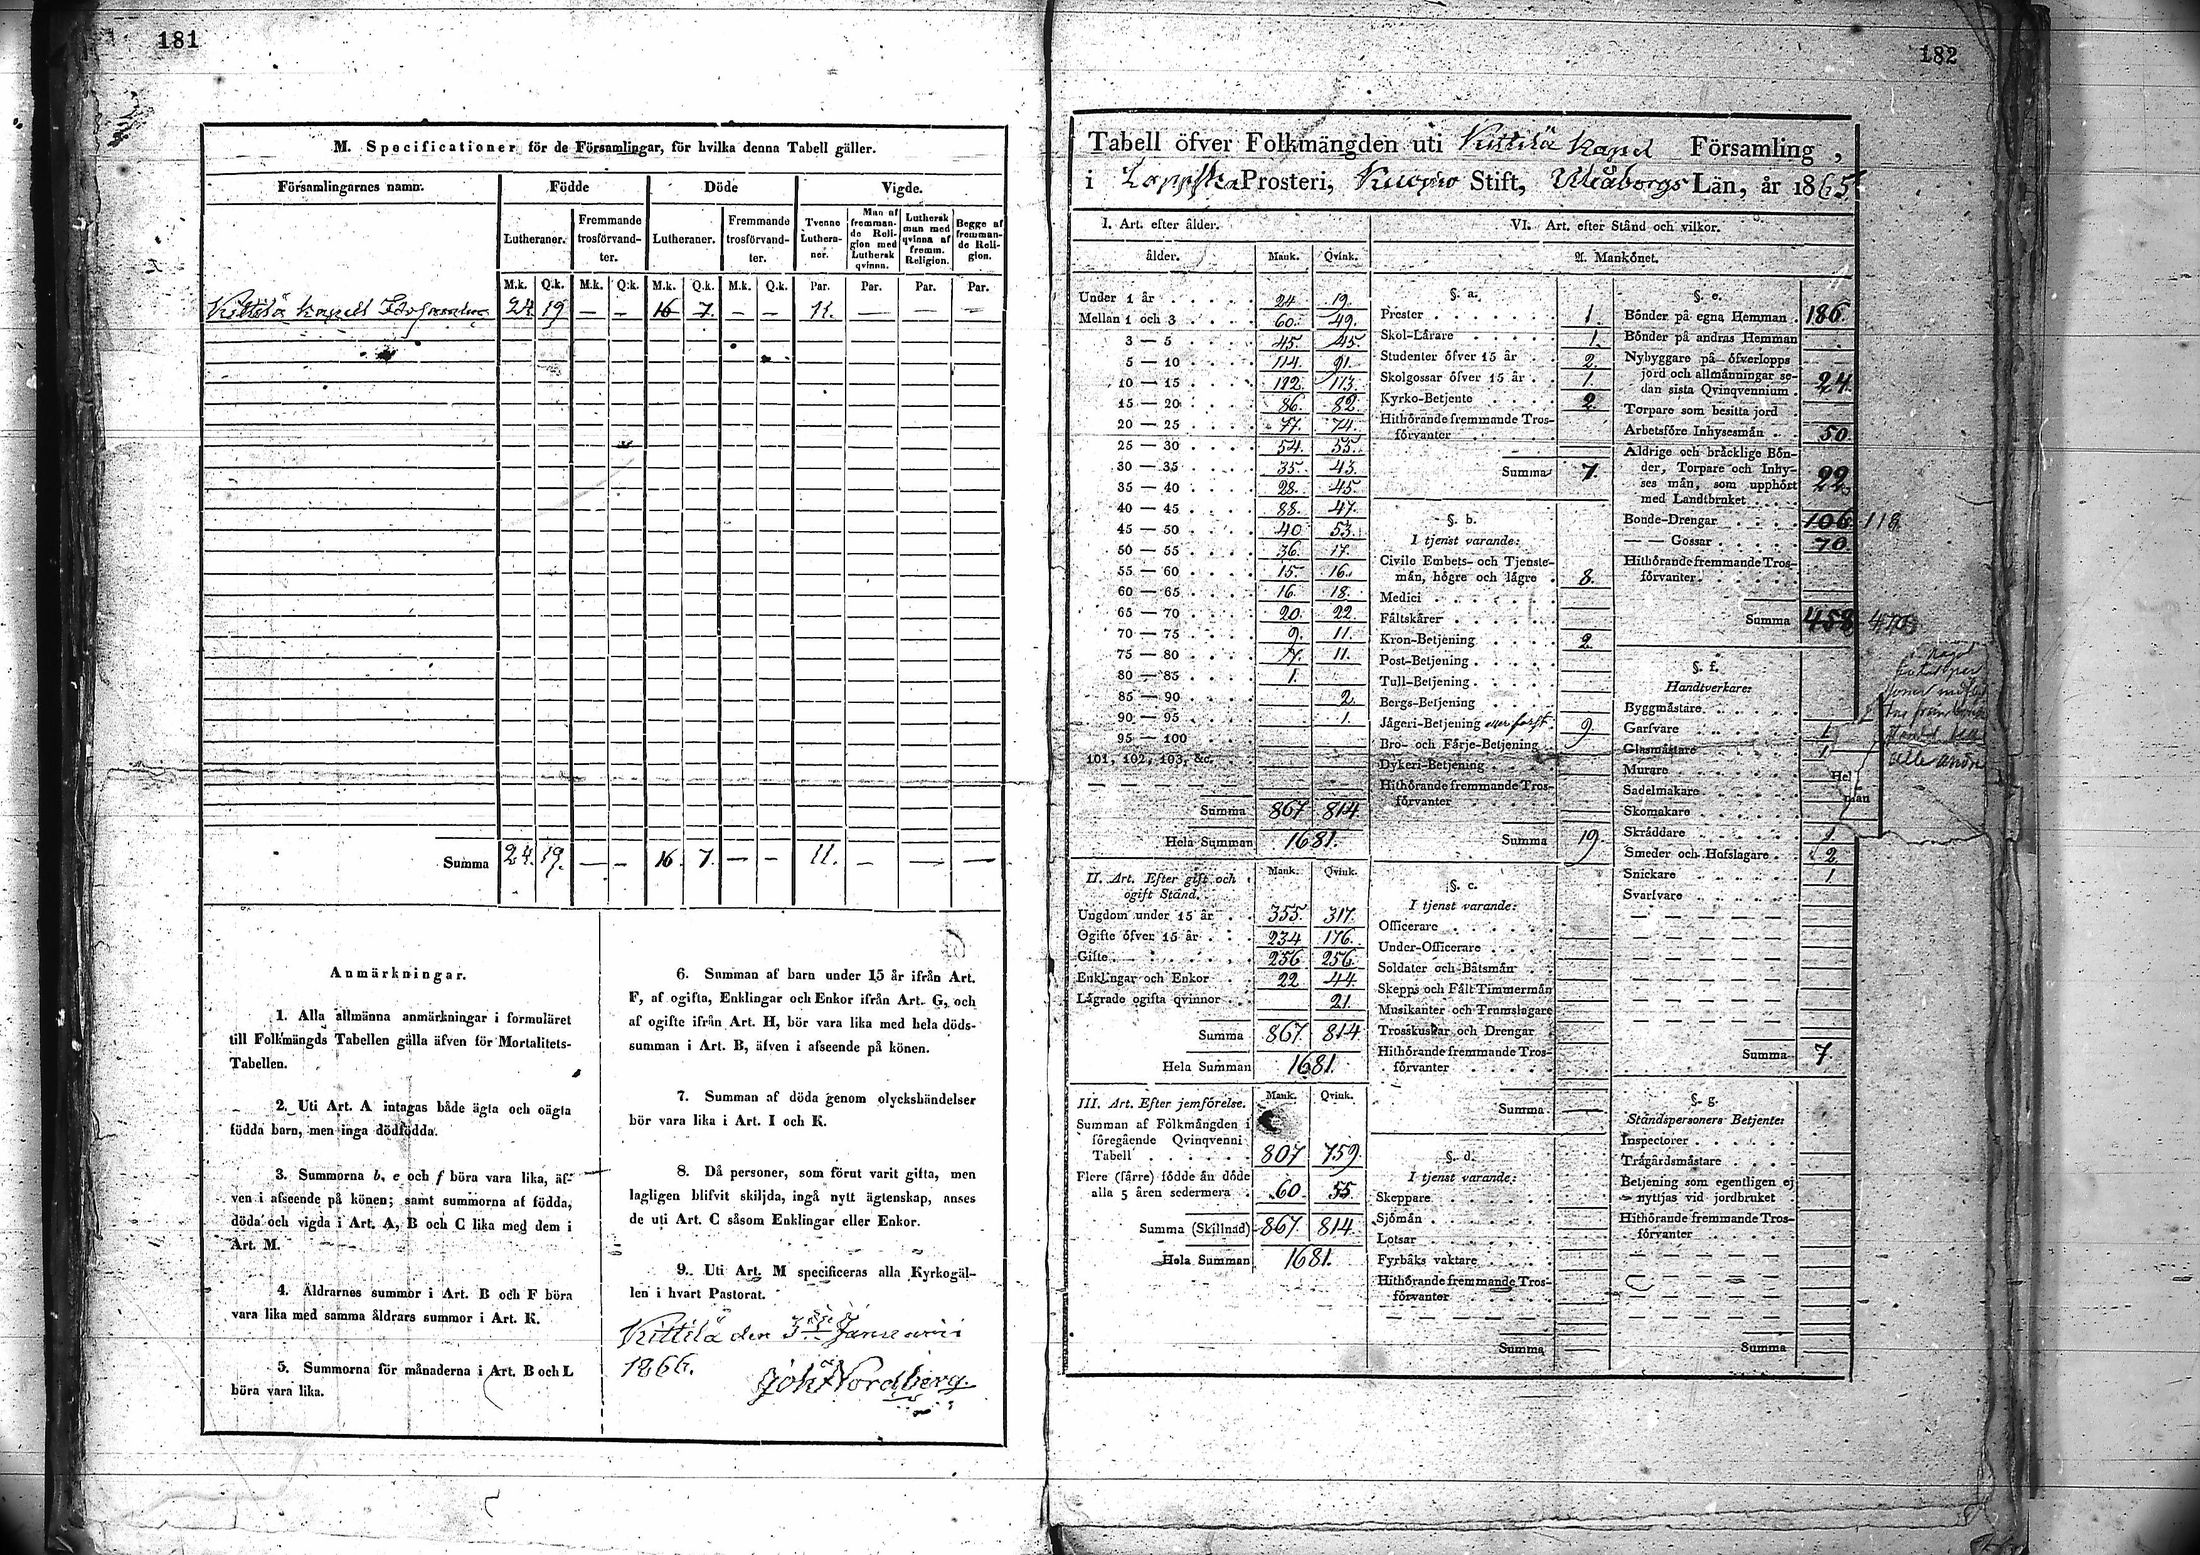 181
M. Specificationer för de Församlingar, för hvilka denna Tabell gäller.
Församlingarnes namn. Födde Döde Vigde.
Lutheraner. Fremmande trosförvandter. Lutheraner. Fremmande trosförvandter. Tvenne Lutheraner. Man af fremmande Religion med Luthersk qvinna. Luthersk man med qvinna af fremm. Religion. Begge af fremmande Religion.
M.k. Q.k. M.k. Q.k. M.k. Q.k. M.k. Q.k. Par. Par. Par. Par.
Kittilä kapell Församling 24. 19 — — 16 7. — — 11. — — —
Summa 24. 19. — — 16. 7. — — 11. — — —
Anmärkningar.
1. Alla allmänna anmärkningar i formuläret
till Folkmängds Tabellen gälla äfven för Mortalitets-
Tabellen.
2. Uti Art. A intagas både ägta och oägta
födda barn, men inga dödfödda.
3. Summorna b, e och f böra vara lika, äf-
ven i afseende på könen; samt summorna af födda,
döda och vigda i Art. A, B och C lika med dem i
Art. M.
4. Äldrarnes summor i Art. B och F böra
vara lika med samma åldrars summor i Art. K.
5. Summorna för månaderna i Art. B och L
böra vara lika.
6. Summan af barn under 15 år ifrån Art.
F, af ogifta, Enklingar och Enkor ifrån Art. G, och
af ogifte ifrån Art. H, bör vara lika med hela döds-
summan i Art. B, äfven i afseende på könen.
7. Summan af döda genom olyckshändelser
bör vara lika i Art. I och K.
8. Då personer, som förut varit gifta, men
lagligen blifvit skiljda, ingå nytt ägtenskap, anses
de uti Art. C såsom Enklingar eller Enkor.
9. Uti Art. M specificeras alla Kyrkogäl-
len i hvart Pastorat.
Kittilä den Januarii
1866.
Joh Nordberg.
182
Tabell öfver Folkmängden uti Kittilä Kapel Församling,
i Lappska Prosteri, Kuopio Stift, Uleåborgs Län, år 1865.
I. Art. efter ålder.
ålder. Mank. Qvink.
Under 1 år 24 19.
Mellan 1 och 3 60. 49.
3 — 5 45 45.
5 — 10 114. 91.
10 — 15 112. 113.
15 — 20 86. 82.
20 — 25 77. 74.
25 — 30 54. 55.
30 — 35 35. 43.
35 — 40 28. 45.
40 — 45 88. 47.
45 — 50 40 53.
50 — 55 36. 17.
55 — 60 15. 16.
60 — 65 16. 18.
65 — 70 20. 22.
70 — 75 9. 11.
75 — 80 7. 11.
80 — 85 1.
85 — 90 2.
90 — 95 1.
95 — 100
101, 102, 103, &c.
Summa 867 814.
Hela Summan 1681.
II. Art. Efter gift och ogift Stånd. Mank. Qvink.
Ungdom under 15 år 355. 317.
Ogifte öfver 15 år 234 176.
Gifte 256 256.
Enklingar och Enkor 22 44.
Lägrade ogifta qvinnor 21.
Summa 867. 814
Hela Summan 1681.
III. Art. Efter jemförelse. Mank. Qvink.
Summan af Folkmängden i
föregående Qvinqvenni
Tabell 807 759.
Flere (färre) födde än döde
alla 5 åren sedermera 60. 55.
Summa (Skillnad) 867. 814.
Hela Summan 1681.
VI. Art. efter Stånd och vilkor.
A. Mankönet.
§. a.
Prester 1.
Skol-Lärare 1.
Studenter öfver 15 år 2.
Skolgossar öfver 15 år 1.
Kyrko-Betjente 2.
Hithörande fremmande Tros-
förvanter
Summa 7.
§. b.
I tjenst varande:
Civile Embets- och Tjenste-
män, högre och lägre 8.
Medici
Fältskärer
Kron-Betjening 2.
Post-Betjening
Tull-Betjening
Bergs-Betjening
Jägeri-Betjening eller forst 9.
Bro- och Färje-Betjening
Dykeri-Betjening
Hithörande fremmande Tros-
förvanter
Summa 19.
§. c.
I tjenst varande:
Officerare
Under-Officerare
Soldater och Båtsmän
Skepps och Fält Timmermän
Musikanter och Trumslagare
Trosskuskar och Drengar
Hithörande fremmande Tros-
förvanter
Summa —
§. d.
I tjenst varande:
Skeppare
Sjömän
Lotsar
Fyrbåks vaktare
Hithörande fremmande Tros-
förvanter
Summa
§. e.
Bönder på egna Hemman 186.
Bönder på andras Hemman
Nybyggare på öfverlopps
jord och allmänningar se-
dan sista Qvinqvennium 24.
Torpare som besitta jord
Arbetsföre Inhysesmän 50.
Åldrige och bräcklige Bön-
der, Torpare och Inhy-
ses män, som upphört
med Landtbruket 22.
Bonde-Drengar 106. 118
— — Gossar 70.
Hithörande fremmande Tros-
förvanter
Summa 458
§. f.
Handtverkare:
Byggmästare
Garfvare 1
Glasmästare 1
Murare
Sadelmakare
Skomakare
Skräddare 1
Smeder och Hofslagare 2.
Snickare 1
Svarfvare
Summa 7.
§. g.
Ståndspersoners Betjente:
Inspectorer
Trägårdsmästare
Betjening som egentligen ej
nyttjas vid jordbruket
Hithörande fremmande Tros-
förvanter
Summa